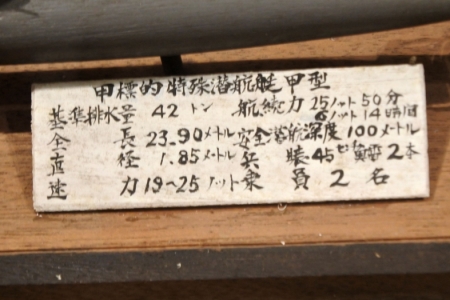 甲標的特殊潜航艇甲型
基準排水量 42 トン 航続力 25ノット 50分
6ノット 14時間
全長 23.90メートル 安全潜航深度 100メートル
直径 1.85メートル 兵装 45センチ魚雷 2本
速力 19~25ノット 乗員 2名